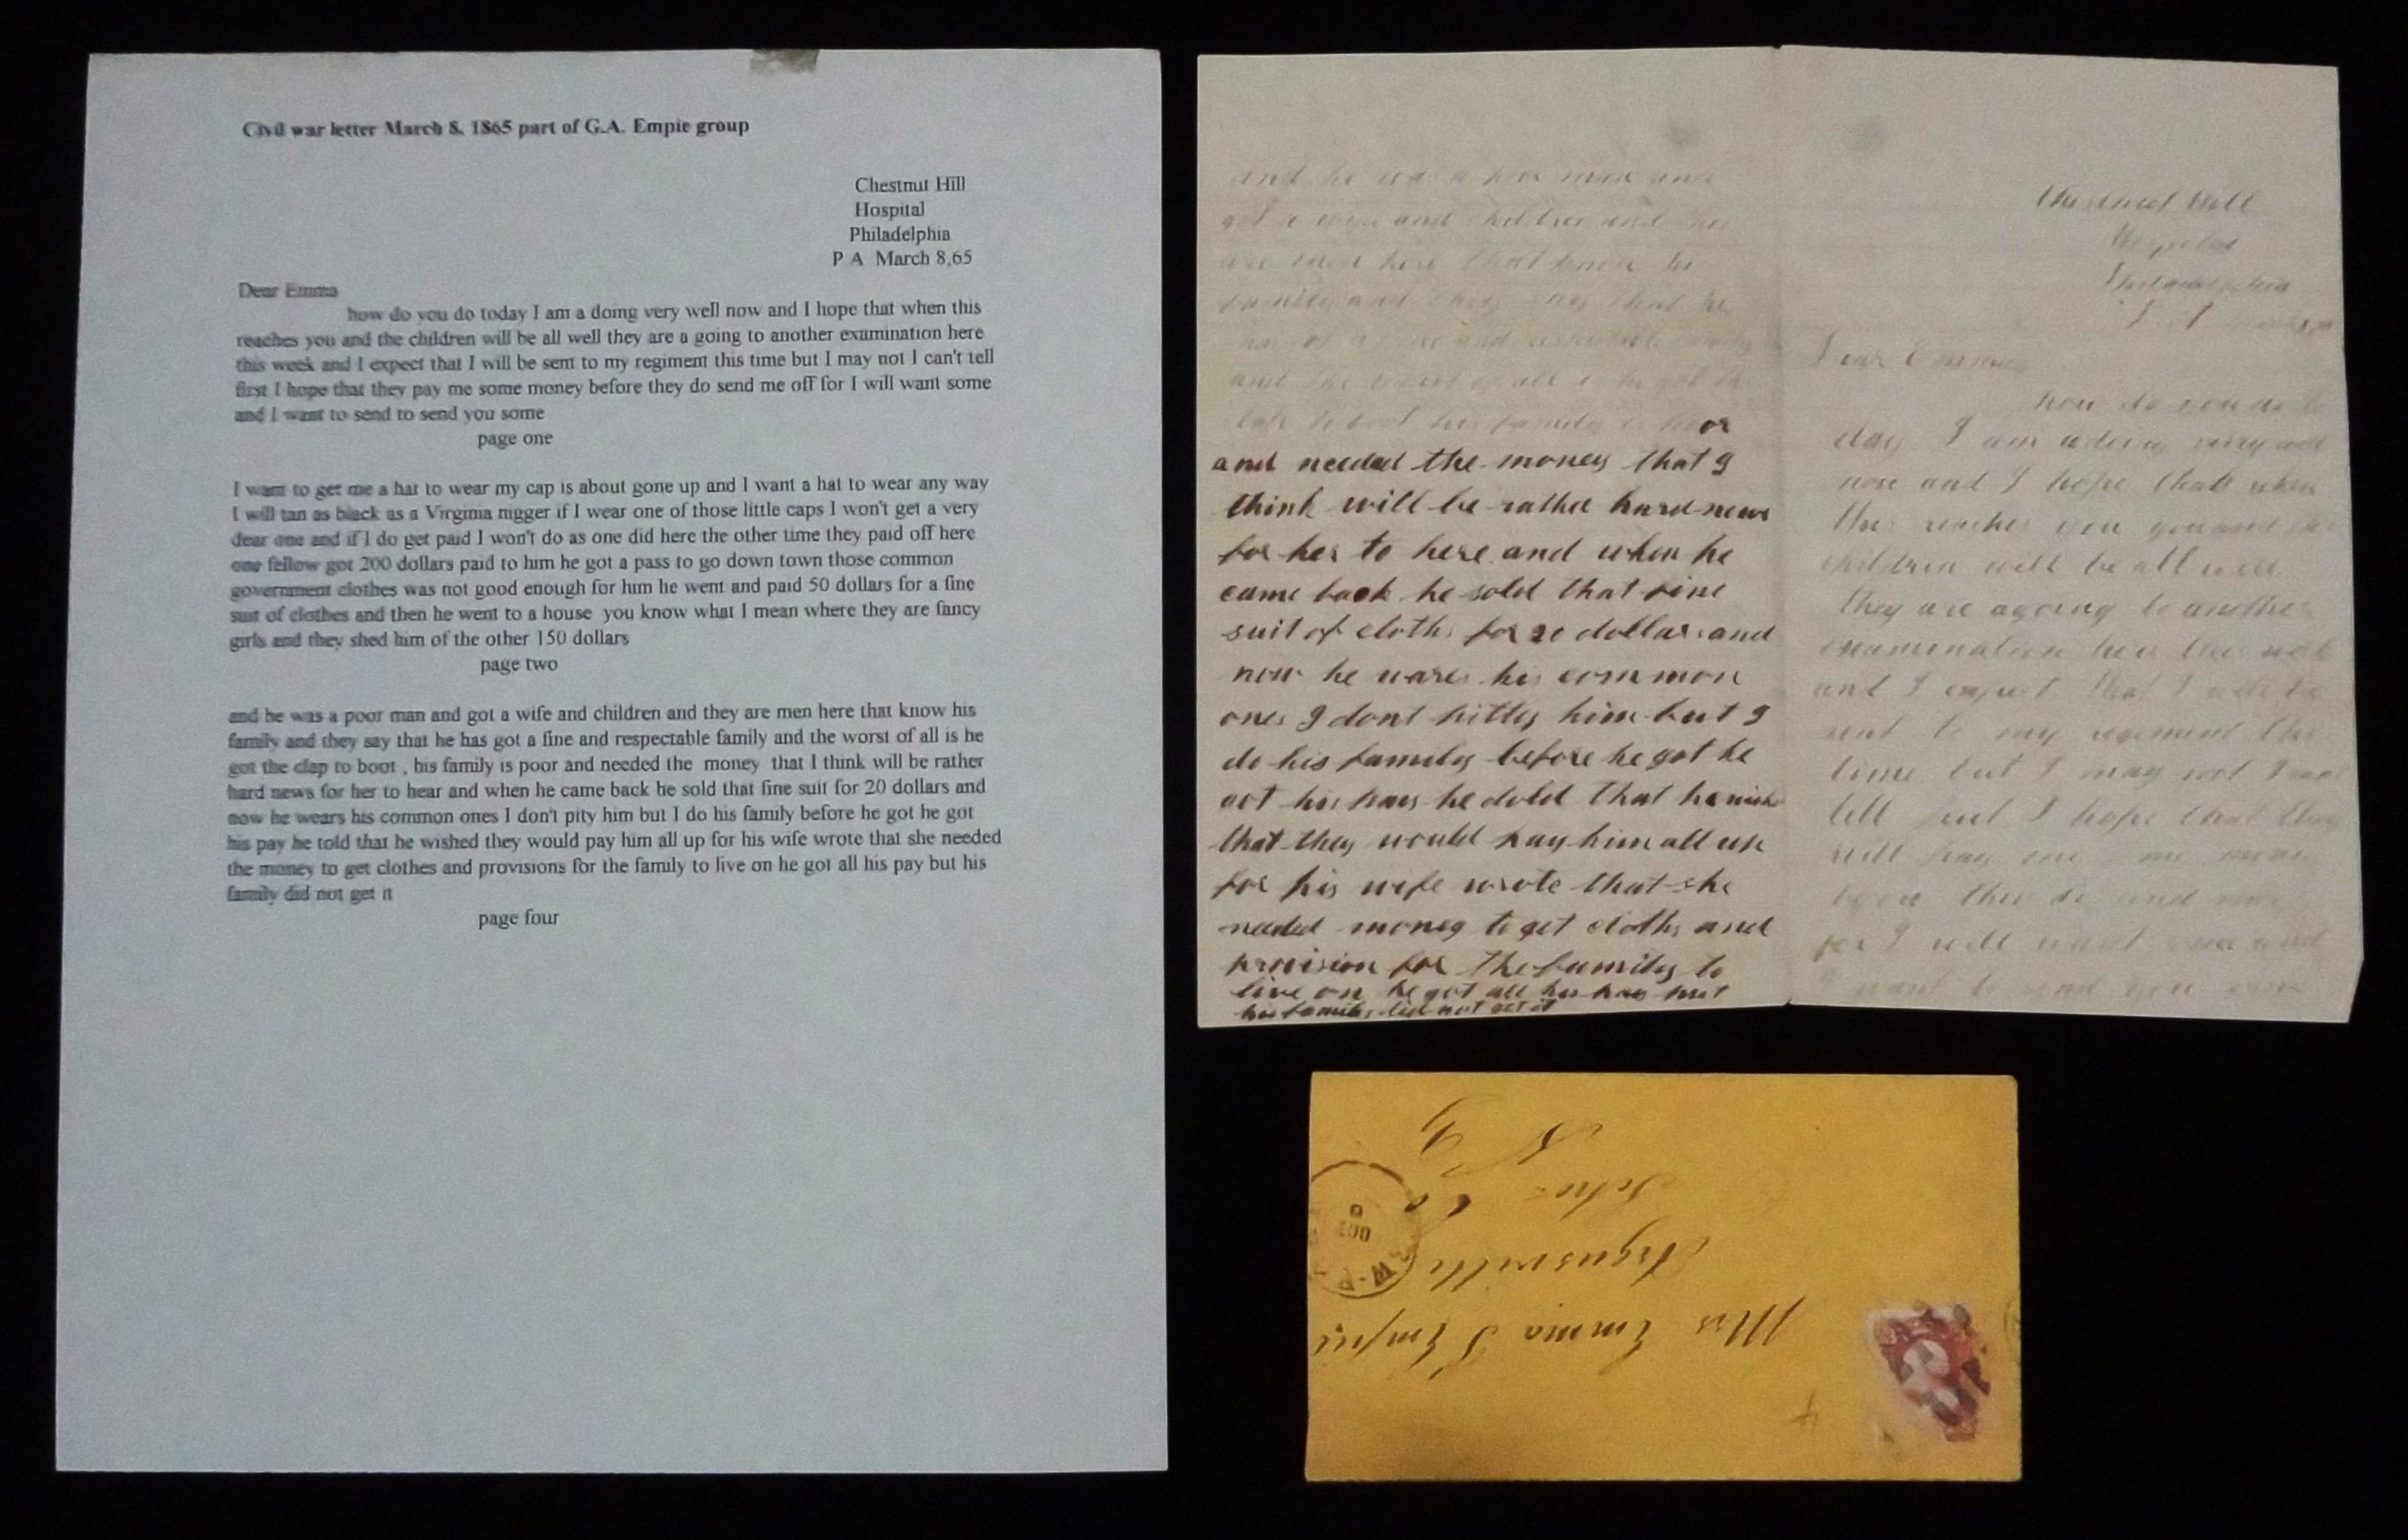 Civil war letter March 8, 1865 part of G.A. Empie group
Chestnut Hill
Hospital
Philadelphia
P A March 8,65
Dear Emma
how do you do today I am a doing very well now and I hope that when this
reaches you and the children will be all well they are a going to another examination here
this week and I expect that I will be sent to my regiment this time but I may not I can't tell
first I hope that they pay me some money before they do send me off for I will want some
and I want to send to send you some
page one
I want to get me a hat to wear my cap is about gone up and I want a hat to wear any way
I will tan as black as a Virginia nigger if I wear one of those little caps I won't get a very
dear one and if I do get paid I won't do as one did here the other time they paid off here
one fellow got 200 dollars paid to him he got a pass to go down town those common
government clothes was not good enough for him he went and paid 50 dollars for a fine
suit of clothes and then he went to a house you know what I mean where they are fancy
girls and they shed him of the other 150 dollars
page two
and he was a poor man and got a wife and children and they are men here that know his
family and they say that he has got a fine and respectable family and the worst of all is he
got the clap to boot , his family is poor and needed the money that I think will be rather
hard news for her to hear and when he came back he sold that fine suit for 20 dollars and
now he wears his common ones I don't pity him but I do his family before he got he got
his pay he told that he wished they would pay him all up for his wife wrote that she needed
the money to get clothes and provisions for the family to live on he got all his pay but his
family did not get it
page four
got a wife and children and
are men here that know his
family and they says that he
has got a fine and respectable family
and the worst of all is he got the
clap to boot his family is poor
and needed the money that I
think will be rather hard news
for her to here and when he
came back he sold that fine
suit of cloths for 20 dollars and
now he wares his common
ones I dont pitty him but I
do his family before he got he
got his pay he dold that he wish
that they would pay him all up
for his wife wrote that she
needed money to get cloths and
provision for the family to
live on he got all his pay but
his family did not get it
Chestnut Hill
Hospital
Philadelphia
Dear Emma
how do you do to
day I am a doing very well
now and I hope that when
this reaches you you and the
children will be all well
they are agoing to another
examination here this week
and I expect that I will be
sent to my regiment this
time but I may not I cant
tell but I hope that they
will pay me
before they do send me
for I will want some and
I want to send you some
Mrs Emma S Empie
Argusville
Scho Co
N Y